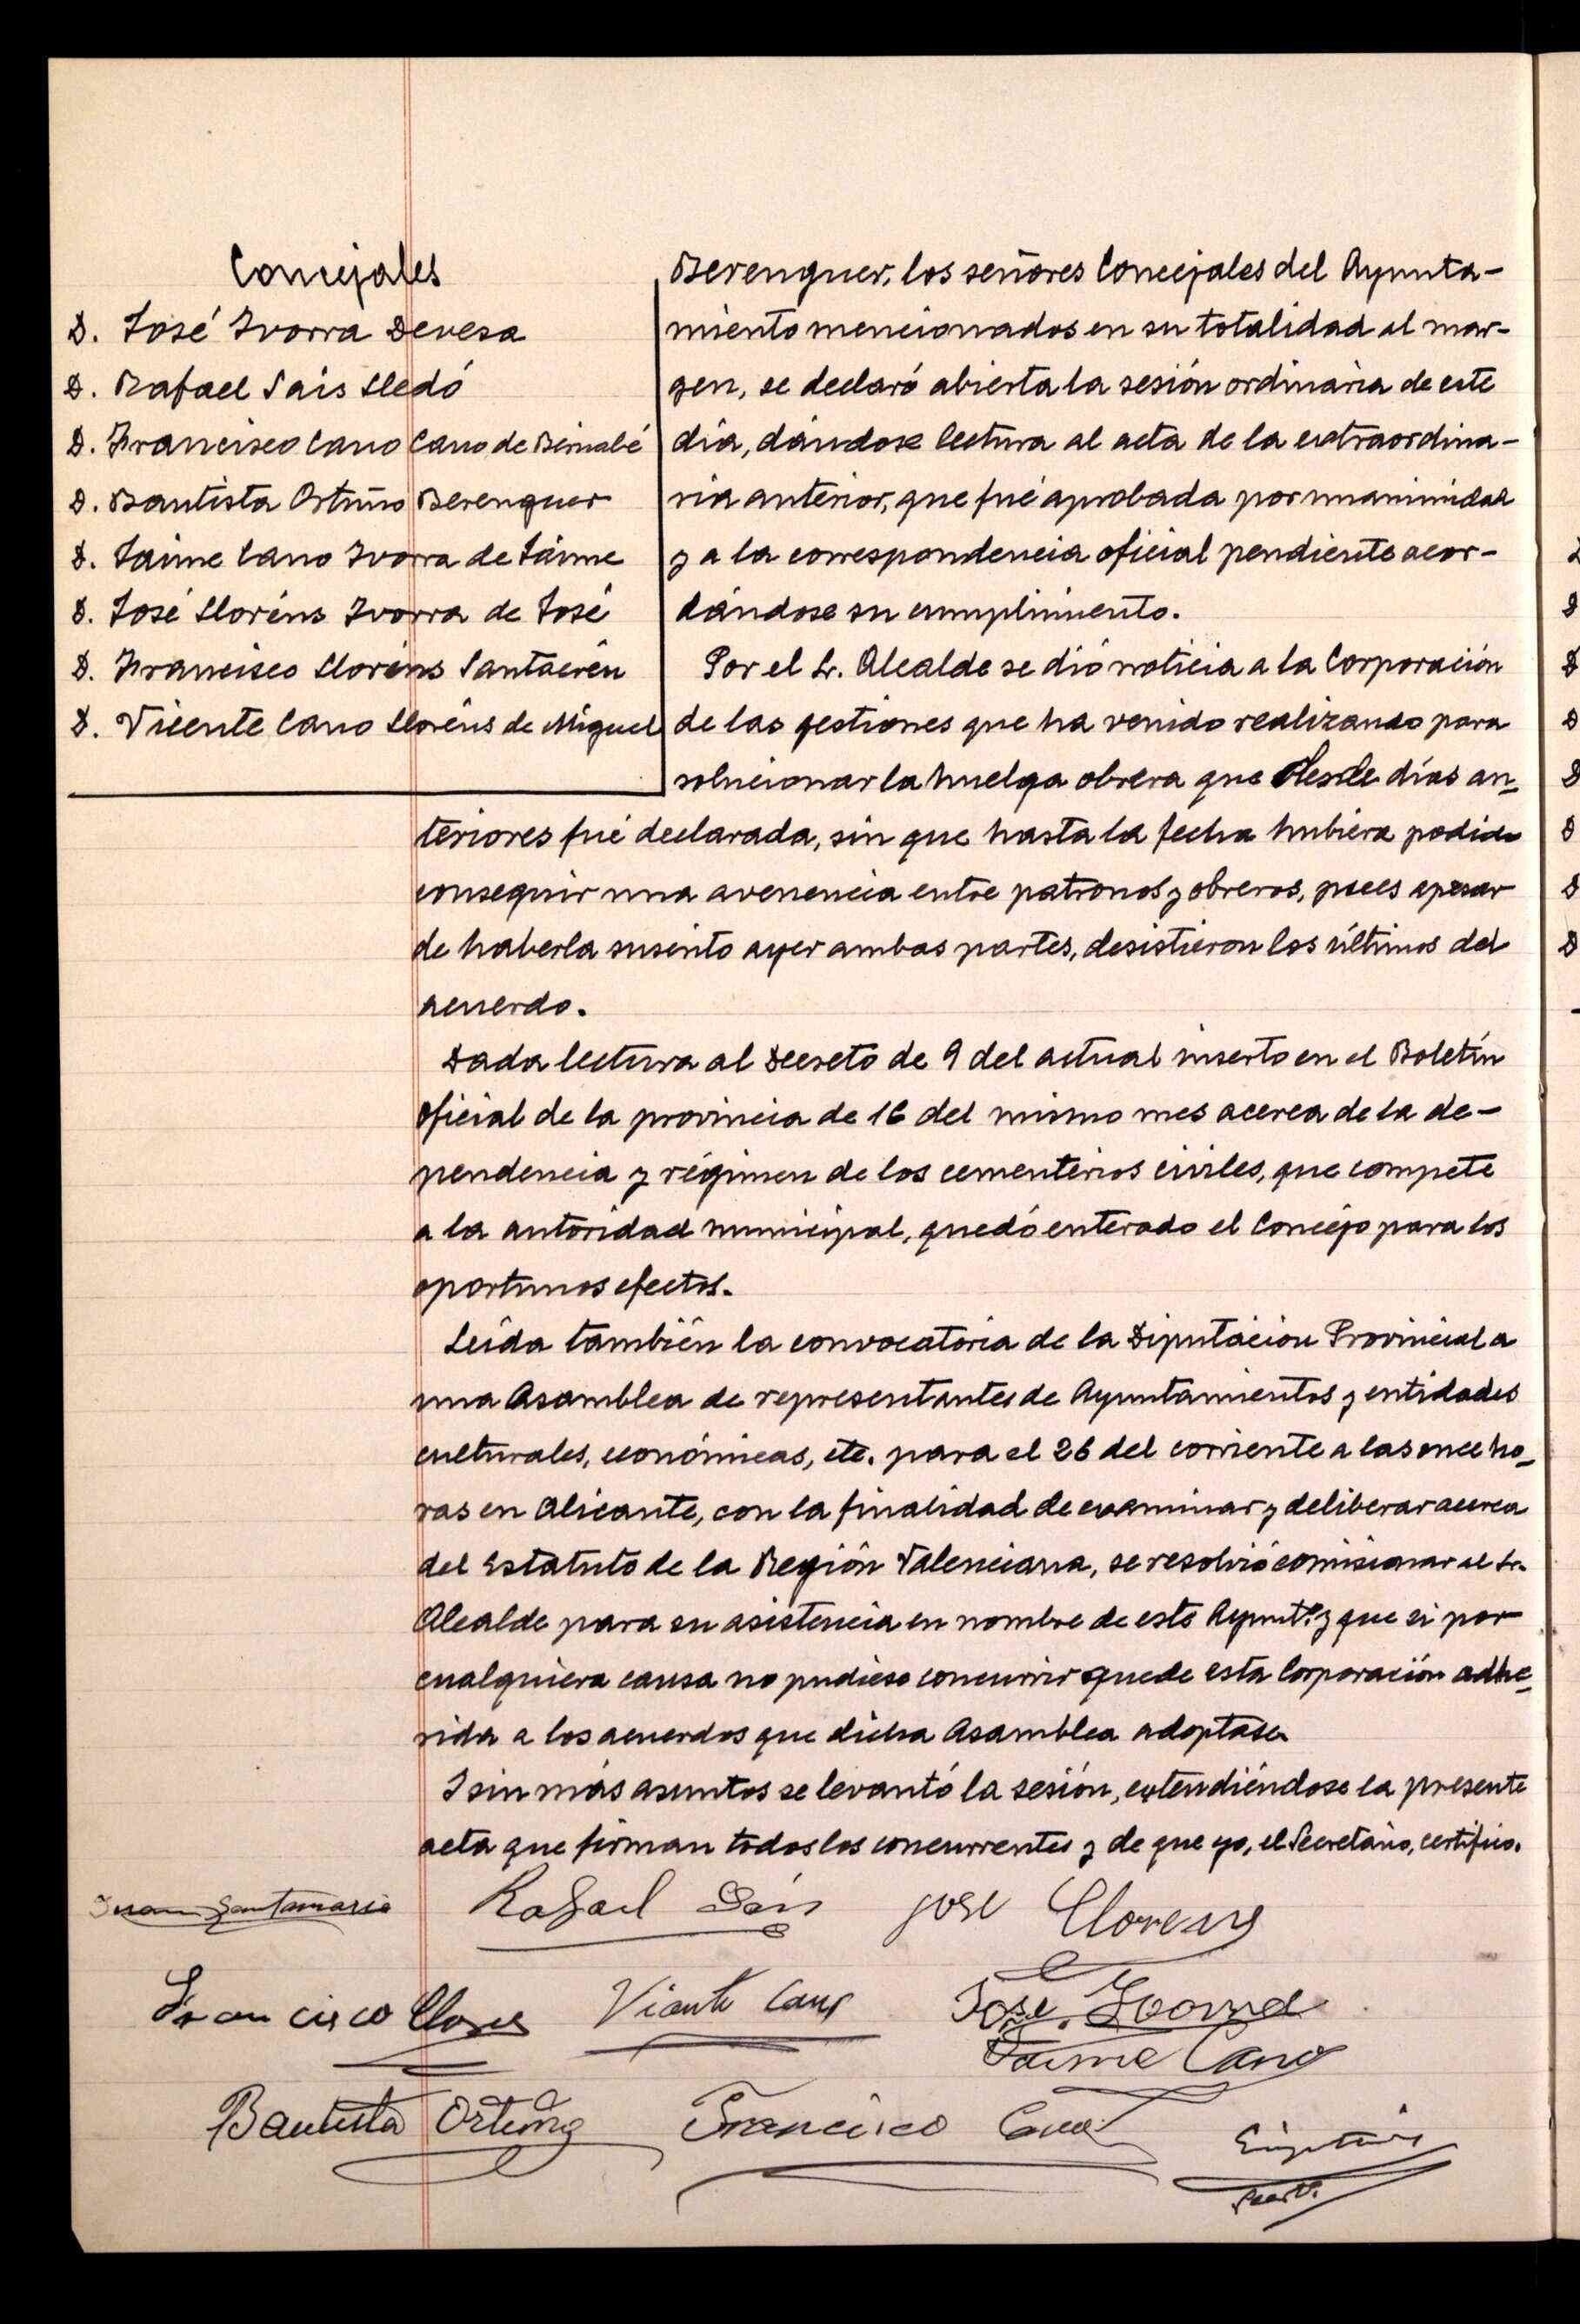 Concejales
D. José Ivorra Devesa
D. Rafael Sais Lledó
D. Francisco Cano Cano de Bernabé
D. Bautista Ortuño Berenguer
D. Jaime Cano Ivorra de Jaime
D. José Lloréns Ivorra de José
D. Francisco Lloréns Santacréu
D. Vicente Cano Lloréns de Miguel
Berenguer, los señores Concejales del Ayunta-
miento mencionados en su totalidad al mar-
gen, se declaró abierta la sesión ordinaria de este
día, dándose lectura al acta de la extraordina-
ria anterior, que fué aprobada por unanimidad
y a la correspondencia oficial pendiente acor-
dándose su cumplimiento.
Por el Sr. Alcalde se dió noticia a la Corporación
de las gestiones que ha venido realizando para
solucionar la huelga obrera que desde días an-
teriores fué declarada, sin que hasta la fecha hubiera podido
conseguir una avenencia entre patronos y obreros, pues apesar
de haberla suscrito ayer ambas partes, desistieron los últimos del
acuerdo.
Dada lectura al Decreto de 9 del actual inserto en el Boletín
oficial de la provincia de 16 del mismo mes acerca de la de-
pendencia y régimen de los cementerios civiles, que compete
a la autoridad municipal, quedó enterado el Concejo para los
oportunos efectos.
Leída también la convocatoria de la Diputación Provincial a
una Asamblea de representantes de Ayuntamientos y entidades
culturales, económicas, etc. para el 26 del corriente a las once ho-
ras en Alicante, con la finalidad de examinar y deliberar acerca
del Estatuto de la Región Valenciana, se resolvió comisionar al Sr.
Alcalde para su asistencia en nombre de este Ayuntº. y que si por
cualquiera causa no pudiese concurrir quede esta Corporación adhe-
rida a los acuerdos que dicha Asamblea adoptase.
I sin más asuntos se levantó la sesión, extendiéndose la presente
acta que firman todos los concurrentes y de que yo, el Secretario, certifico.
Juan Santamaria Rafael Sáis José Llorens
Francisco Llorens Vicente Cano José Ivorra
Jaime Cano
Bautista Ortuño Francisco Cano